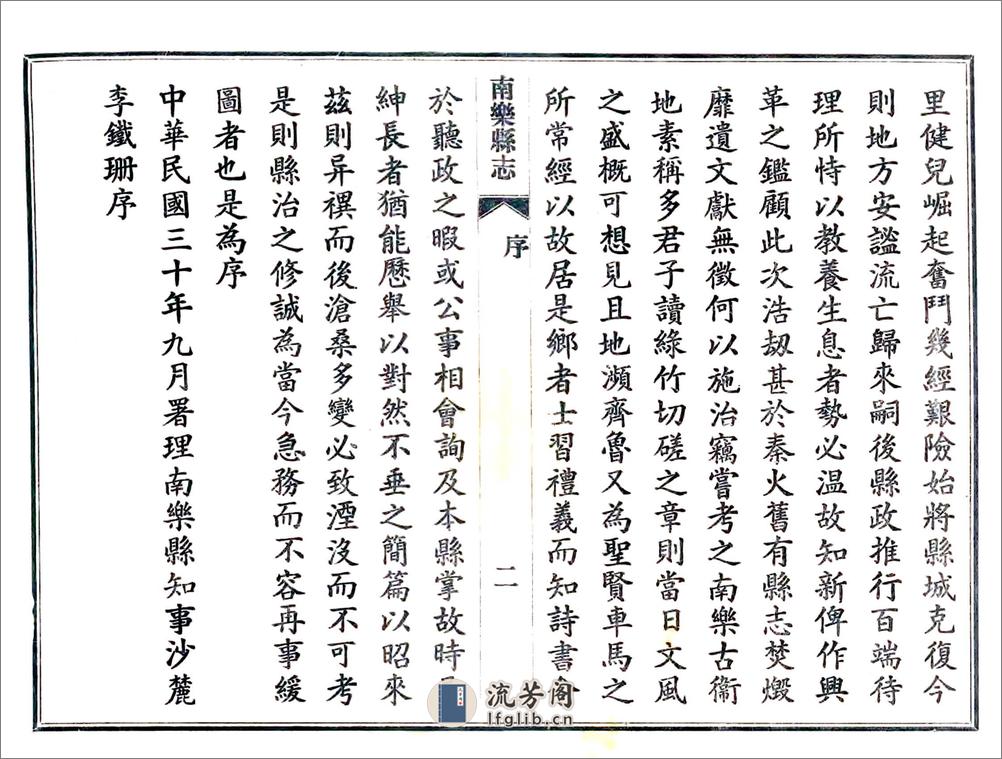 里健兒崛起奮鬥幾經艱險始將縣城克復今
則地方安謐流亡歸來嗣後縣政推行百端待
理所恃以教養生息者勢必温故知新俾作興
革之鑑顧此次浩劫甚於秦火舊有縣志焚燬
靡遺文獻無徵何以施治竊嘗考之南樂古衞
地素稱多君子讀綠竹切磋之章則當日文風
之盛概可想見且地瀕齊魯又為聖賢車馬之
所常經以故居是鄉者士習禮義而知詩書
南樂縣志
序
二
於聽政之暇或公事相會詢及本縣掌故時
紳長者猶能歷舉以對然不垂之簡篇以昭來
茲則异禩而後滄桑多變必致湮沒而不可考
是則縣治之修誠為當今急務而不容再事緩
圖者也是為序
中華民國三十年九月署理南樂縣知事沙麓
李鐵珊序
流芳阁
lfglib.cn